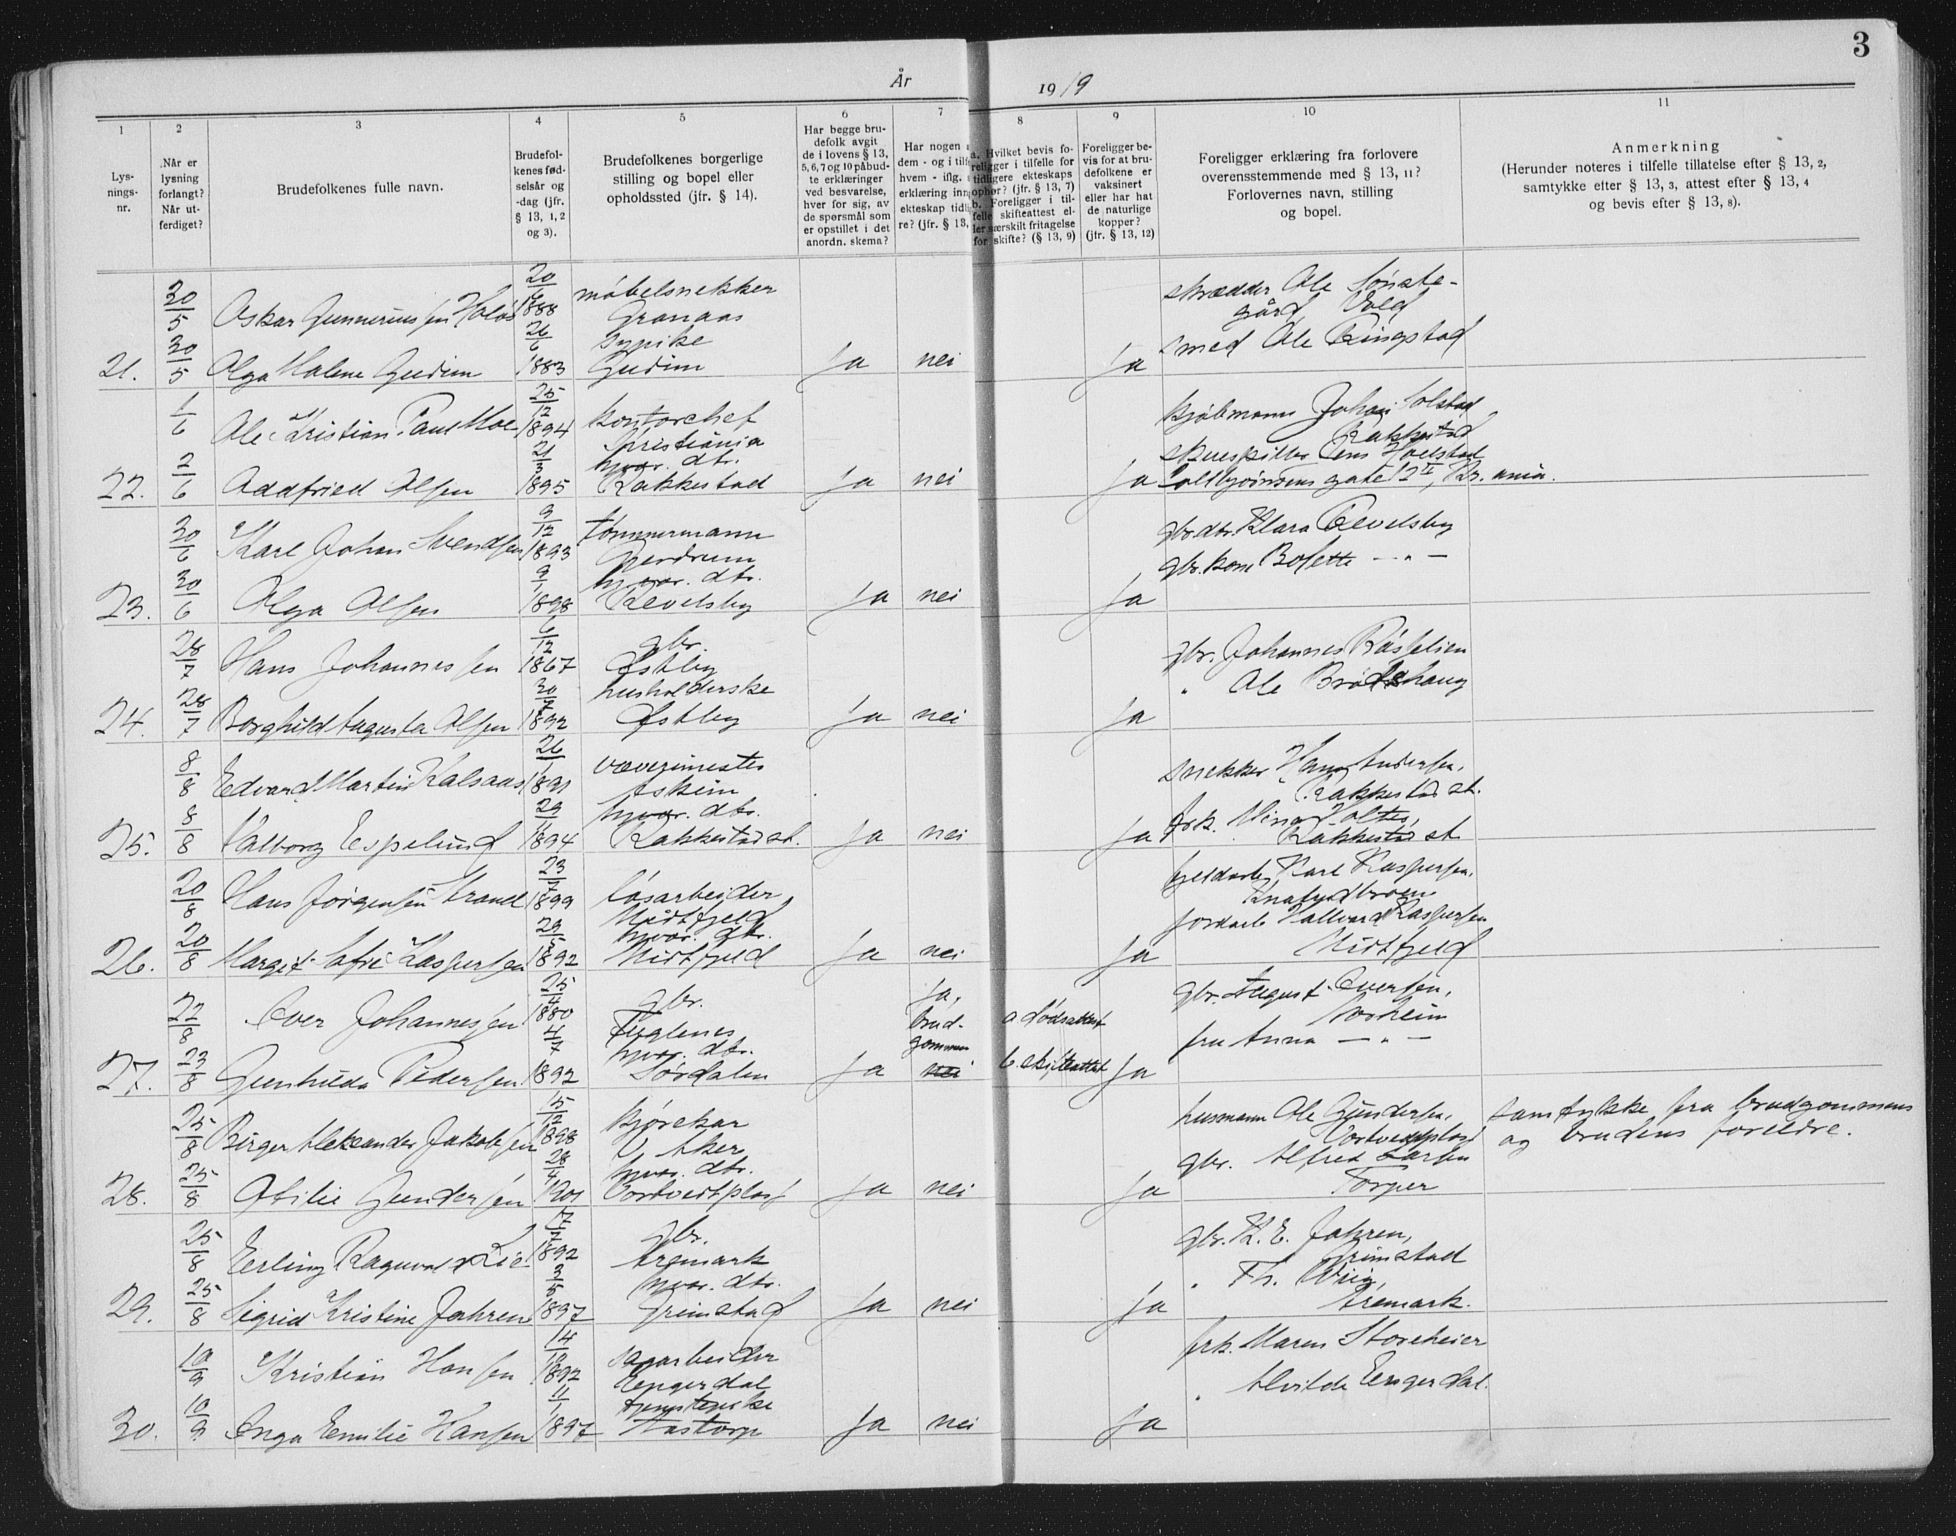 3
År 1919
1 2 3 4 5 6 7 8 9 10 11
Lys-
nings-
nr.
Når er
lysning
forlangt?
Når ut-
ferdiget?
Brudefolkenes fulle navn.
Brudefol-
kenes fød-
selsår og
-dag (jfr.
§ 13, 1, 2
og 3).
Brudefolkenes borgerlige
stilling og bopel eller
opholdssted (jfr. § 14).
Har begge bru-
defolk avgit
de i lovens § 13,
5, 6, 7 og 10 påbud-
te erklæringer
ved besvarelse,
hver for sig, av
de spørsmål som
er opstillet i det
anordn. skema?
Har nogen
dem - og i tilf
hvem - iflg.
erklæring inn
ekteskap tidlig
re? (jfr. § 13,
a. Hvilket bevis fo-
religger i tilfelle for
tidligere ekteskaps
ophør? (jfr. § 13, 7)
b. Foreligger i til-
felle skifteattest el-
ler særskilt fritagelse
for skifte? (§ 13, 9)
Foreligger be-
vis for at bru-
defolkene er
vaksinert
eller har hat
de naturlige
kopper?
(jfr. § 13, 12)
Foreligger erklæring fra forlovere
overensstemmende med § 13, 11?
Forlovernes navn, stilling
og bopel.
Anmerkning
(Herunder noteres i tilfelle tillatelse efter § 13, 2,
samtykke efter § 13, 3, attest efter § 13, 4
og bevis efter § 13, 8).
30/5 Oskar Gunneriussen 1888 møbelsnekker Granaas skrædder Ole
21. 30/5 Olga Malene Gudim 26/6 1883 sypike Gudim Ja nei Ja smed Ole Ringstad
1/6 Ole Kristian Paul Moe 25/12 1894 kontorchef Kristiania kjøbmann Johan Solstad Rakkestad
22. 2/6 Aadfried Olsen 21/3 1895 hjvær. dtr. Rakkestad Ja nei Ja skuespiller Jens Holstad Coldbjørnsens gate 12 II, Kr.ania.
30/6 Karl Johan Svendsen 3/12 1893 tømmermann Gjerdrum gbr. dtr. Klara Revelsby
23. 30/6 Olga Olsen 9/1 1898 hjvær. dtr. Revelsby Ja nei Ja gbr. kone Bolette — " —
28/7 Hans Johannessen 6/12 1867 gbr. Østby gbr. Johannes
24. 28/7 Borghild Augusta Olsen 30/7 1892 husholderske Østby Ja nei Ja " Ole
8/8 Edvard Martin Kalsaas 26/1 1891 Askim snekker Hans Andersen, Rakkestad st.
25. 8/8 Valborg Espelund 29/1 1894 hjvær. dtr. Rakkestad st. Ja nei Ja frk. Mina Holter, Rakkestad st.
20/8 Hans Jørgensen 23/7 1899 løsarbeider Midtfjeld Karl Kaspersen,
26. 20/8 Margit Sofie Kaspersen 29/5 1892 hjvær. dtr. Midtfjeld Ja nei Ja jordarb. Hallvard Kaspersen Midtfjeld
22/8 Iver Johannessen 25/4 1880 gbr. Fuglenes Ja, brud-gommen a dødsattest gbr. August Iversen,
27. 23/8 Gunhilda Pedersen 4/7 1892 hjvær. dtr. Sørdalen Ja nei b. skifteattest Ja fru Anna — " —
25/8 Birger Aleksander Jakobsen 15/12 1898 kjørekar V. Aker husmann Ole Gundersen, samtykke fra brudgommens
og brudens foreldre.
28. 25/8 Otilie Gundersen 28/4 1901 hjvær. dtr. Ja nei Ja gbr. Alfred Larsen Torper
25/8 Erling Ragnvald Lie 17/7 1892 gbr. Aremark gbr. K. E. Jahren, Grimstad
29. 25/8 Sigrid Kristine Jahren 3/5 1897 hjvær. dtr. Grimstad Ja nei Ja " Th. Wiig, Aremark.
10/9 Kristian Hansen 14/10 1892 sagarbeider Engerdal frk. Maren Storeheier
30. 10/9 Inga Emilie Hansen 11/1 1897 tjenestepike Aastorp Ja nei Ja " Alvilde Engerdal.